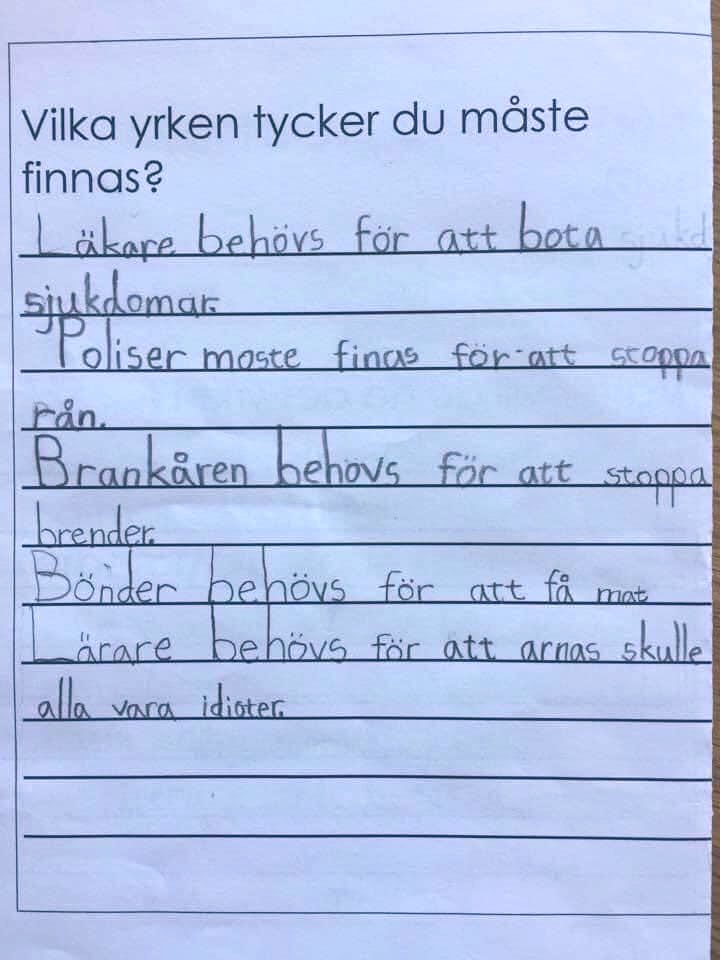 Vilka yrken tycker du måste
finnas?
Läkare behövs för att bota
sjukdomar.
Poliser moste finas för att stoppa
rån.
Brankåren behövs för att stoppa
brender.
Bönder behövs för att få mat
Lärare behövs för att arnas skulle
alla vara idioter.